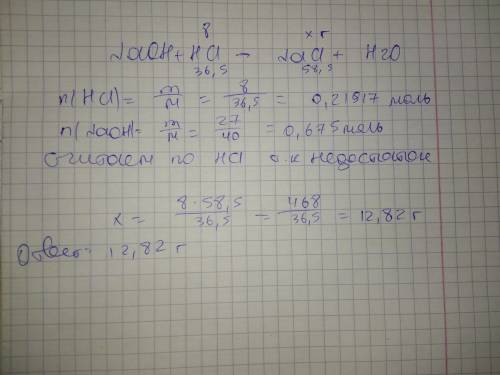 8 x г
NaOH + HCl — NaCl + H2O
36,5 58,5
n(HCl) = m/M = 8/36,5 = 0,21917 моль
n(NaOH) = m/M = 27/40 = 0,675 моль
считаем по HCl т.к недостаток
x = 8·58,5/36,5 = 468/36,5 = 12,82 г
Ответ: 12,82 г